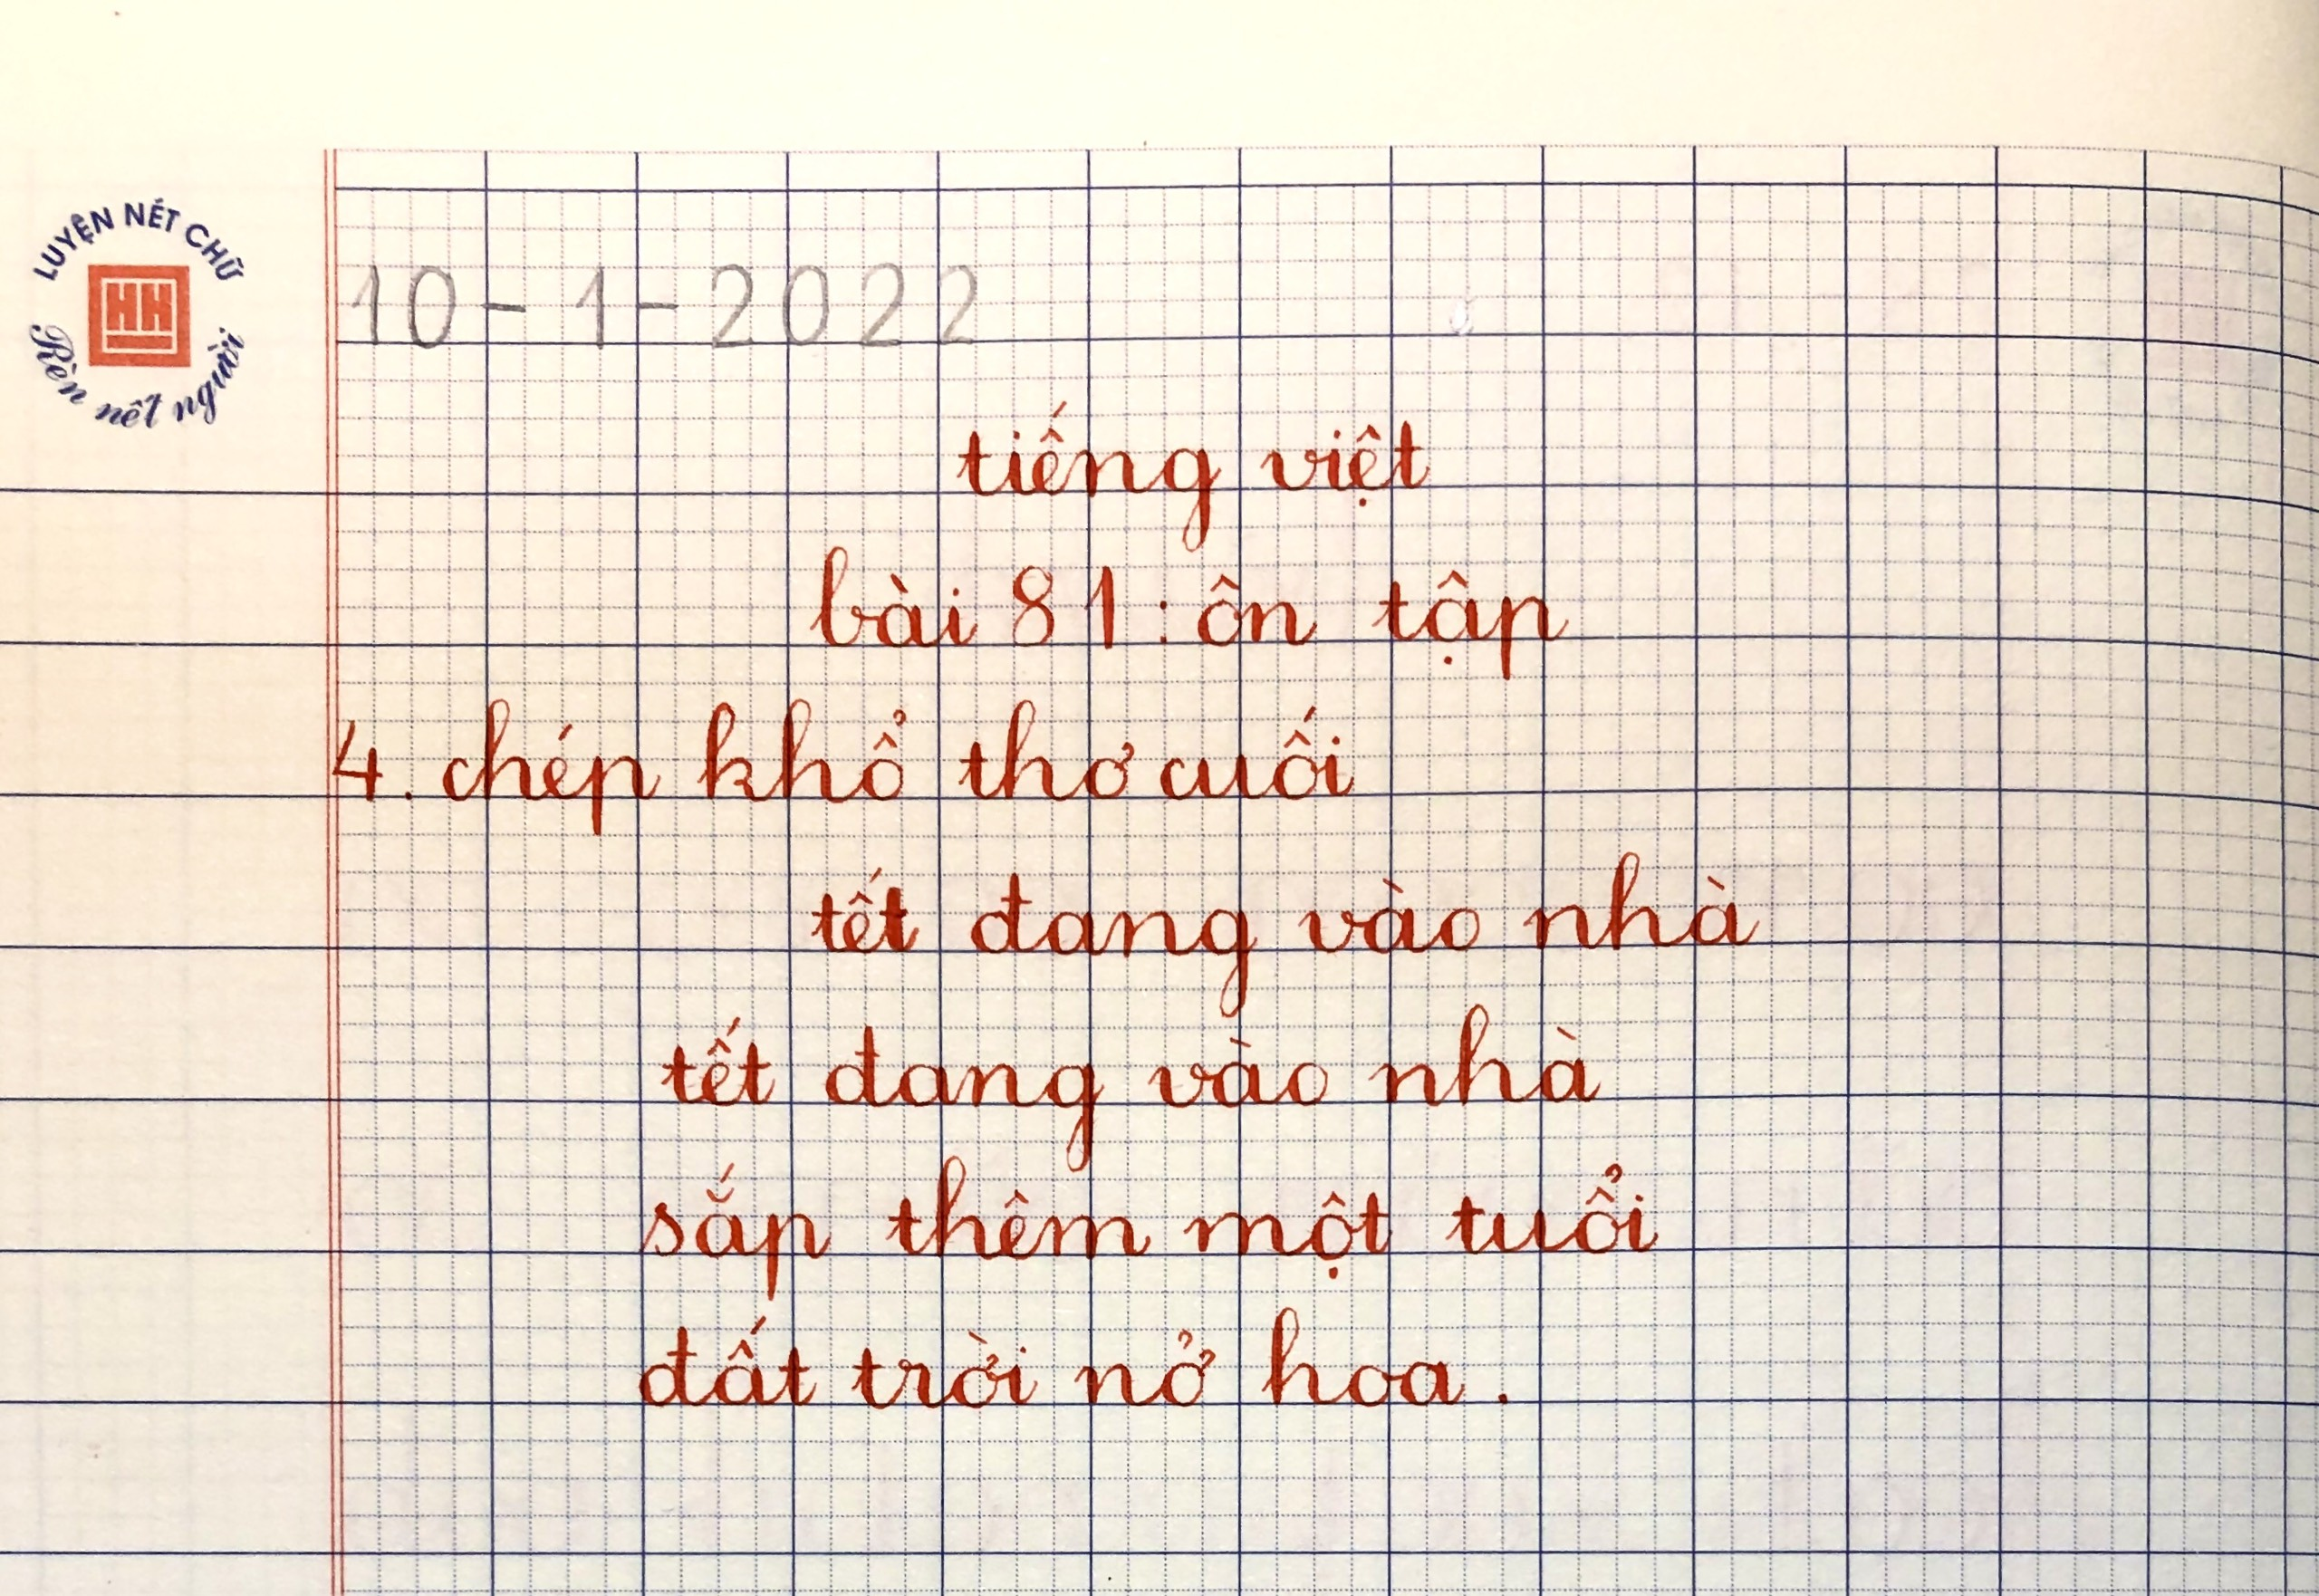 LUYỆN NÉT CHỮ
HH
Rèn nết người
10-1-2022
tiếng việt
bài 81: ôn tập
4. chép khổ thơ cuối
tết đang vào nhà
tết đang vào nhà
sắp thêm một tuổi
đất trời nở hoa.